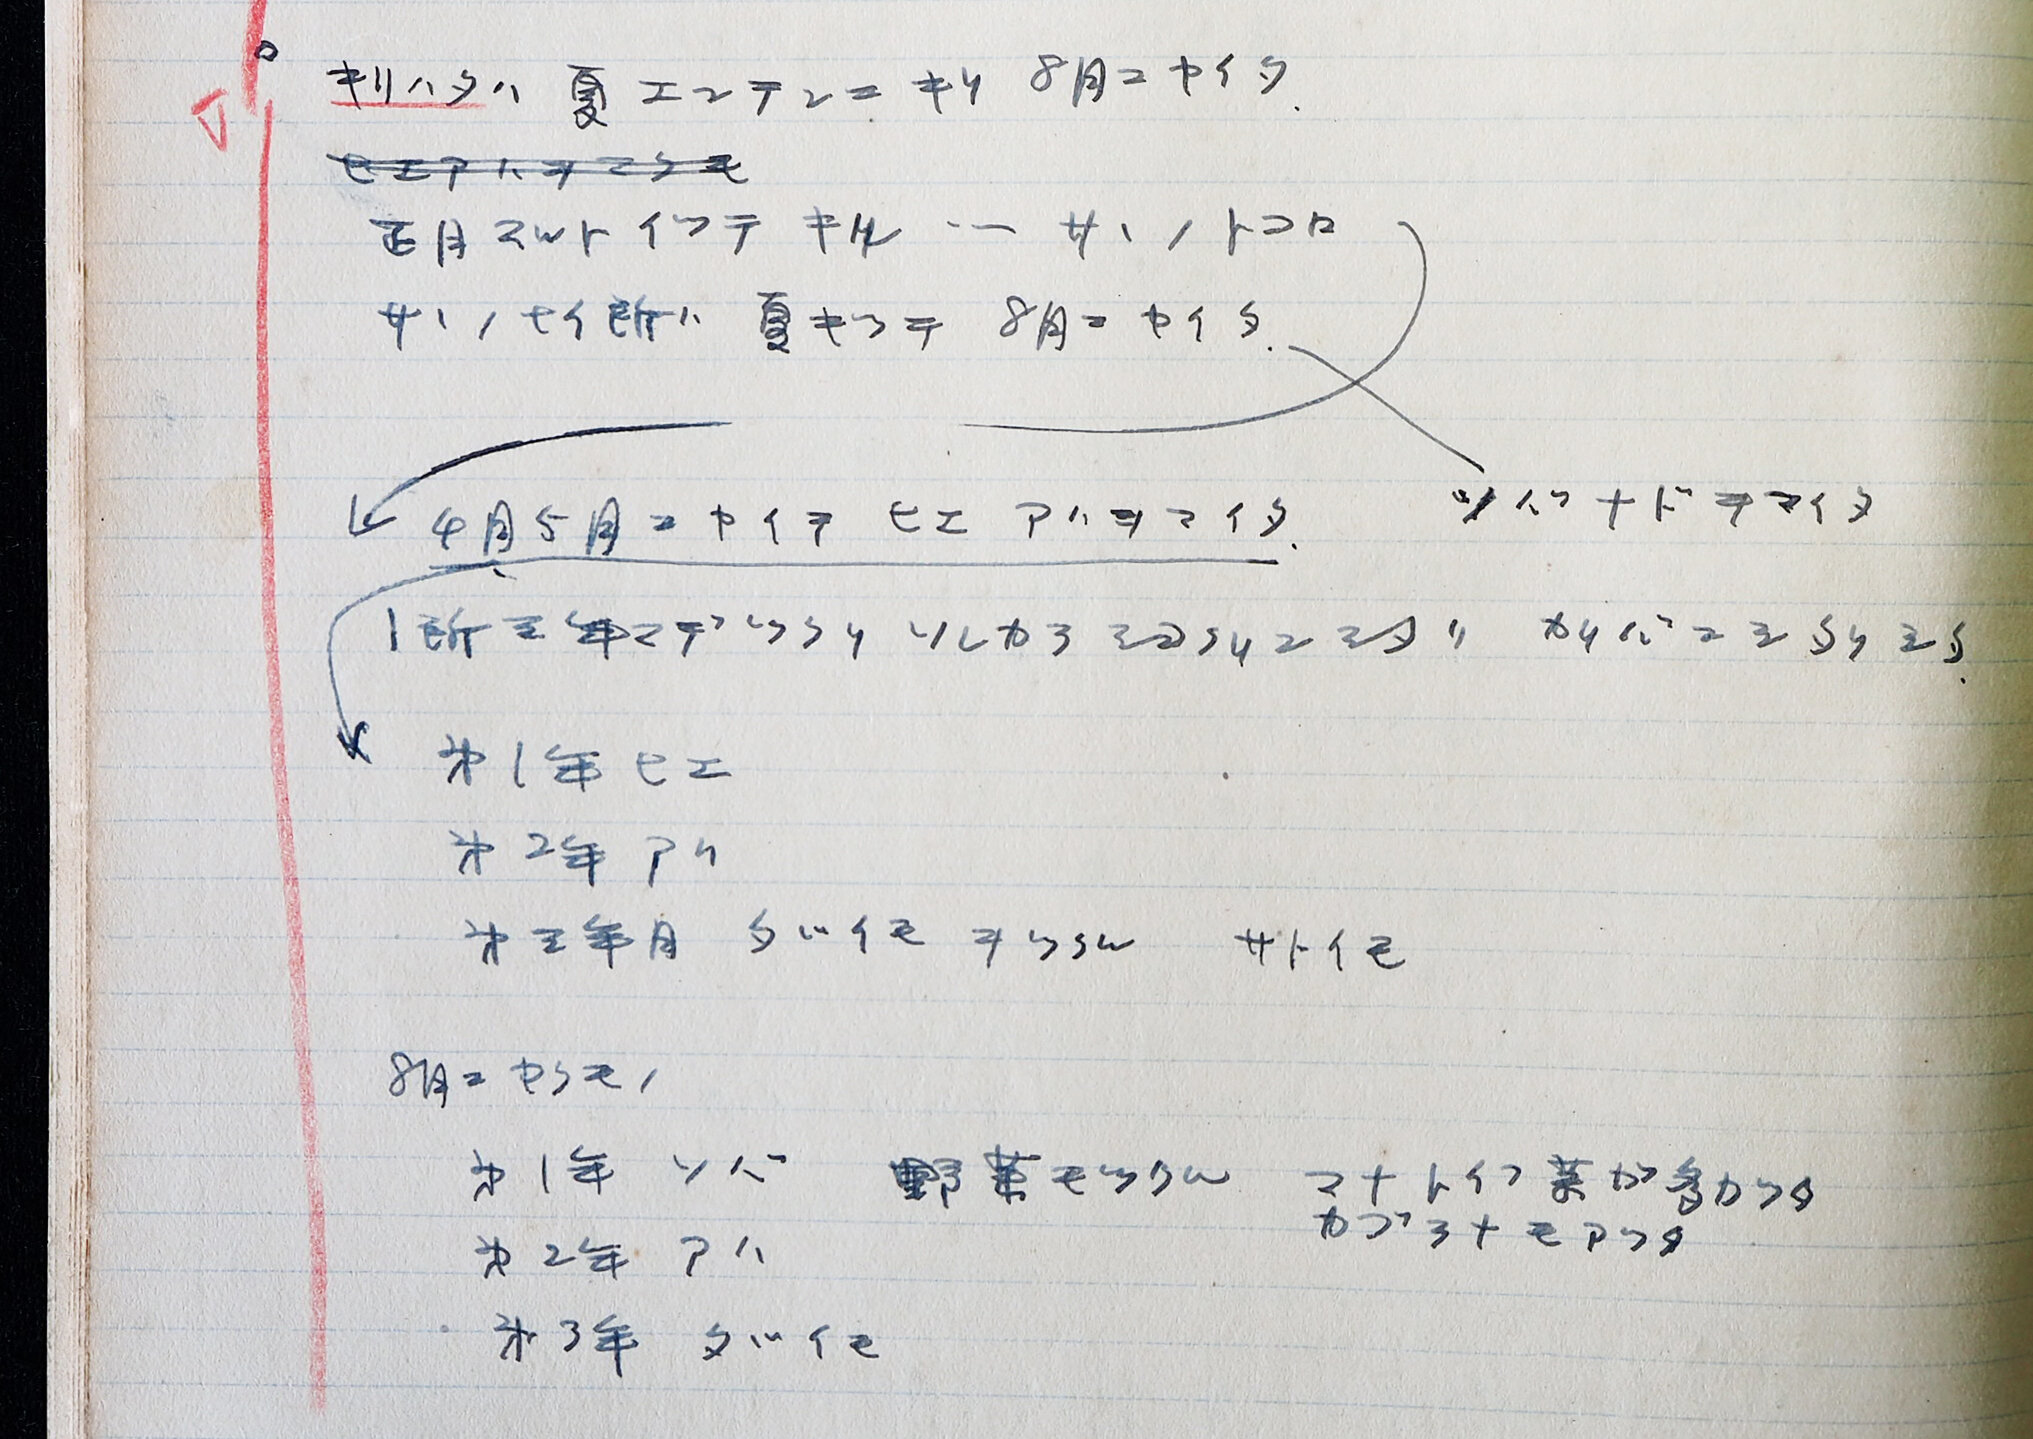 キリハタハ 夏エンテンニキリ 8月ニヤイタ.
ヒエアハヲマクモ
正月スルト イツテ キル … サヽノトコロ
サヽノナイ所ハ 夏キツテ 8月ニヤイタ.
4月5月ニヤイテ ヒエ アハヲマイタ. ソバナドヲマイタ
1所三年マデツクリ ソレカラ
第1年 ヒエ
第2年 アハ
第三年目 タバイモヲツクル サトイモ
8月ニヤクモノ
第1年 ソバ 野菜モツクル マナトイフ菜ガ多カツタ
カブラナモアツタ
第2年 アハ
第3年 タバイモ